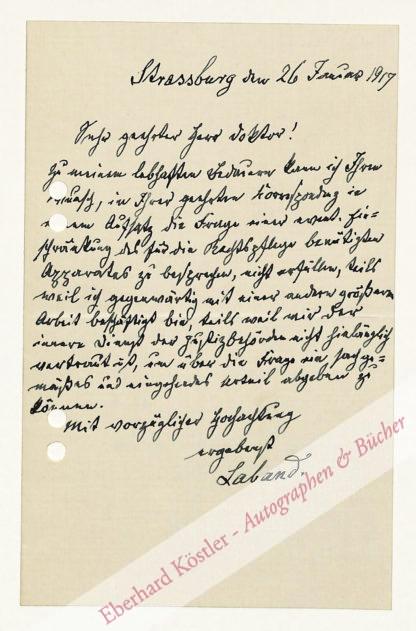 Strassburg den 26 Januar 1917
Sehr geehrter Herr Doktor!
Zu meinem lebhaften Bedauern kann ich Ihren
Wunsch, in Ihrer geehrten Korrespondenz in
einem Aufsatz die Frage einer event. Ein=
schränkung des für die Rechtspflege benötigten
Apparates zu besprechen, nicht erfüllen, teils
weil ich gegenwärtig mit einer andern größeren
Arbeit beschäftigt bin, teils weil mir der
innere Dienst der Justizbehörden nicht hinlänglich
vertraut ist, um über die Frage ein sachge=
mäßes und eingehendes Urteil abgeben zu
können.
Mit vorzüglicher Hochachtung
ergebenst
Laband.
Eberhard Köstler - Autographen & Bücher